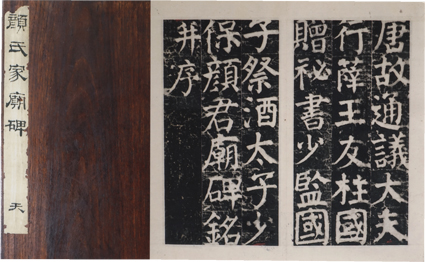 顏氏家廟碑
天
唐故通議大夫
行薛王友柱國
贈祕書少監國
子祭酒太子少
保顏君廟碑銘
并序